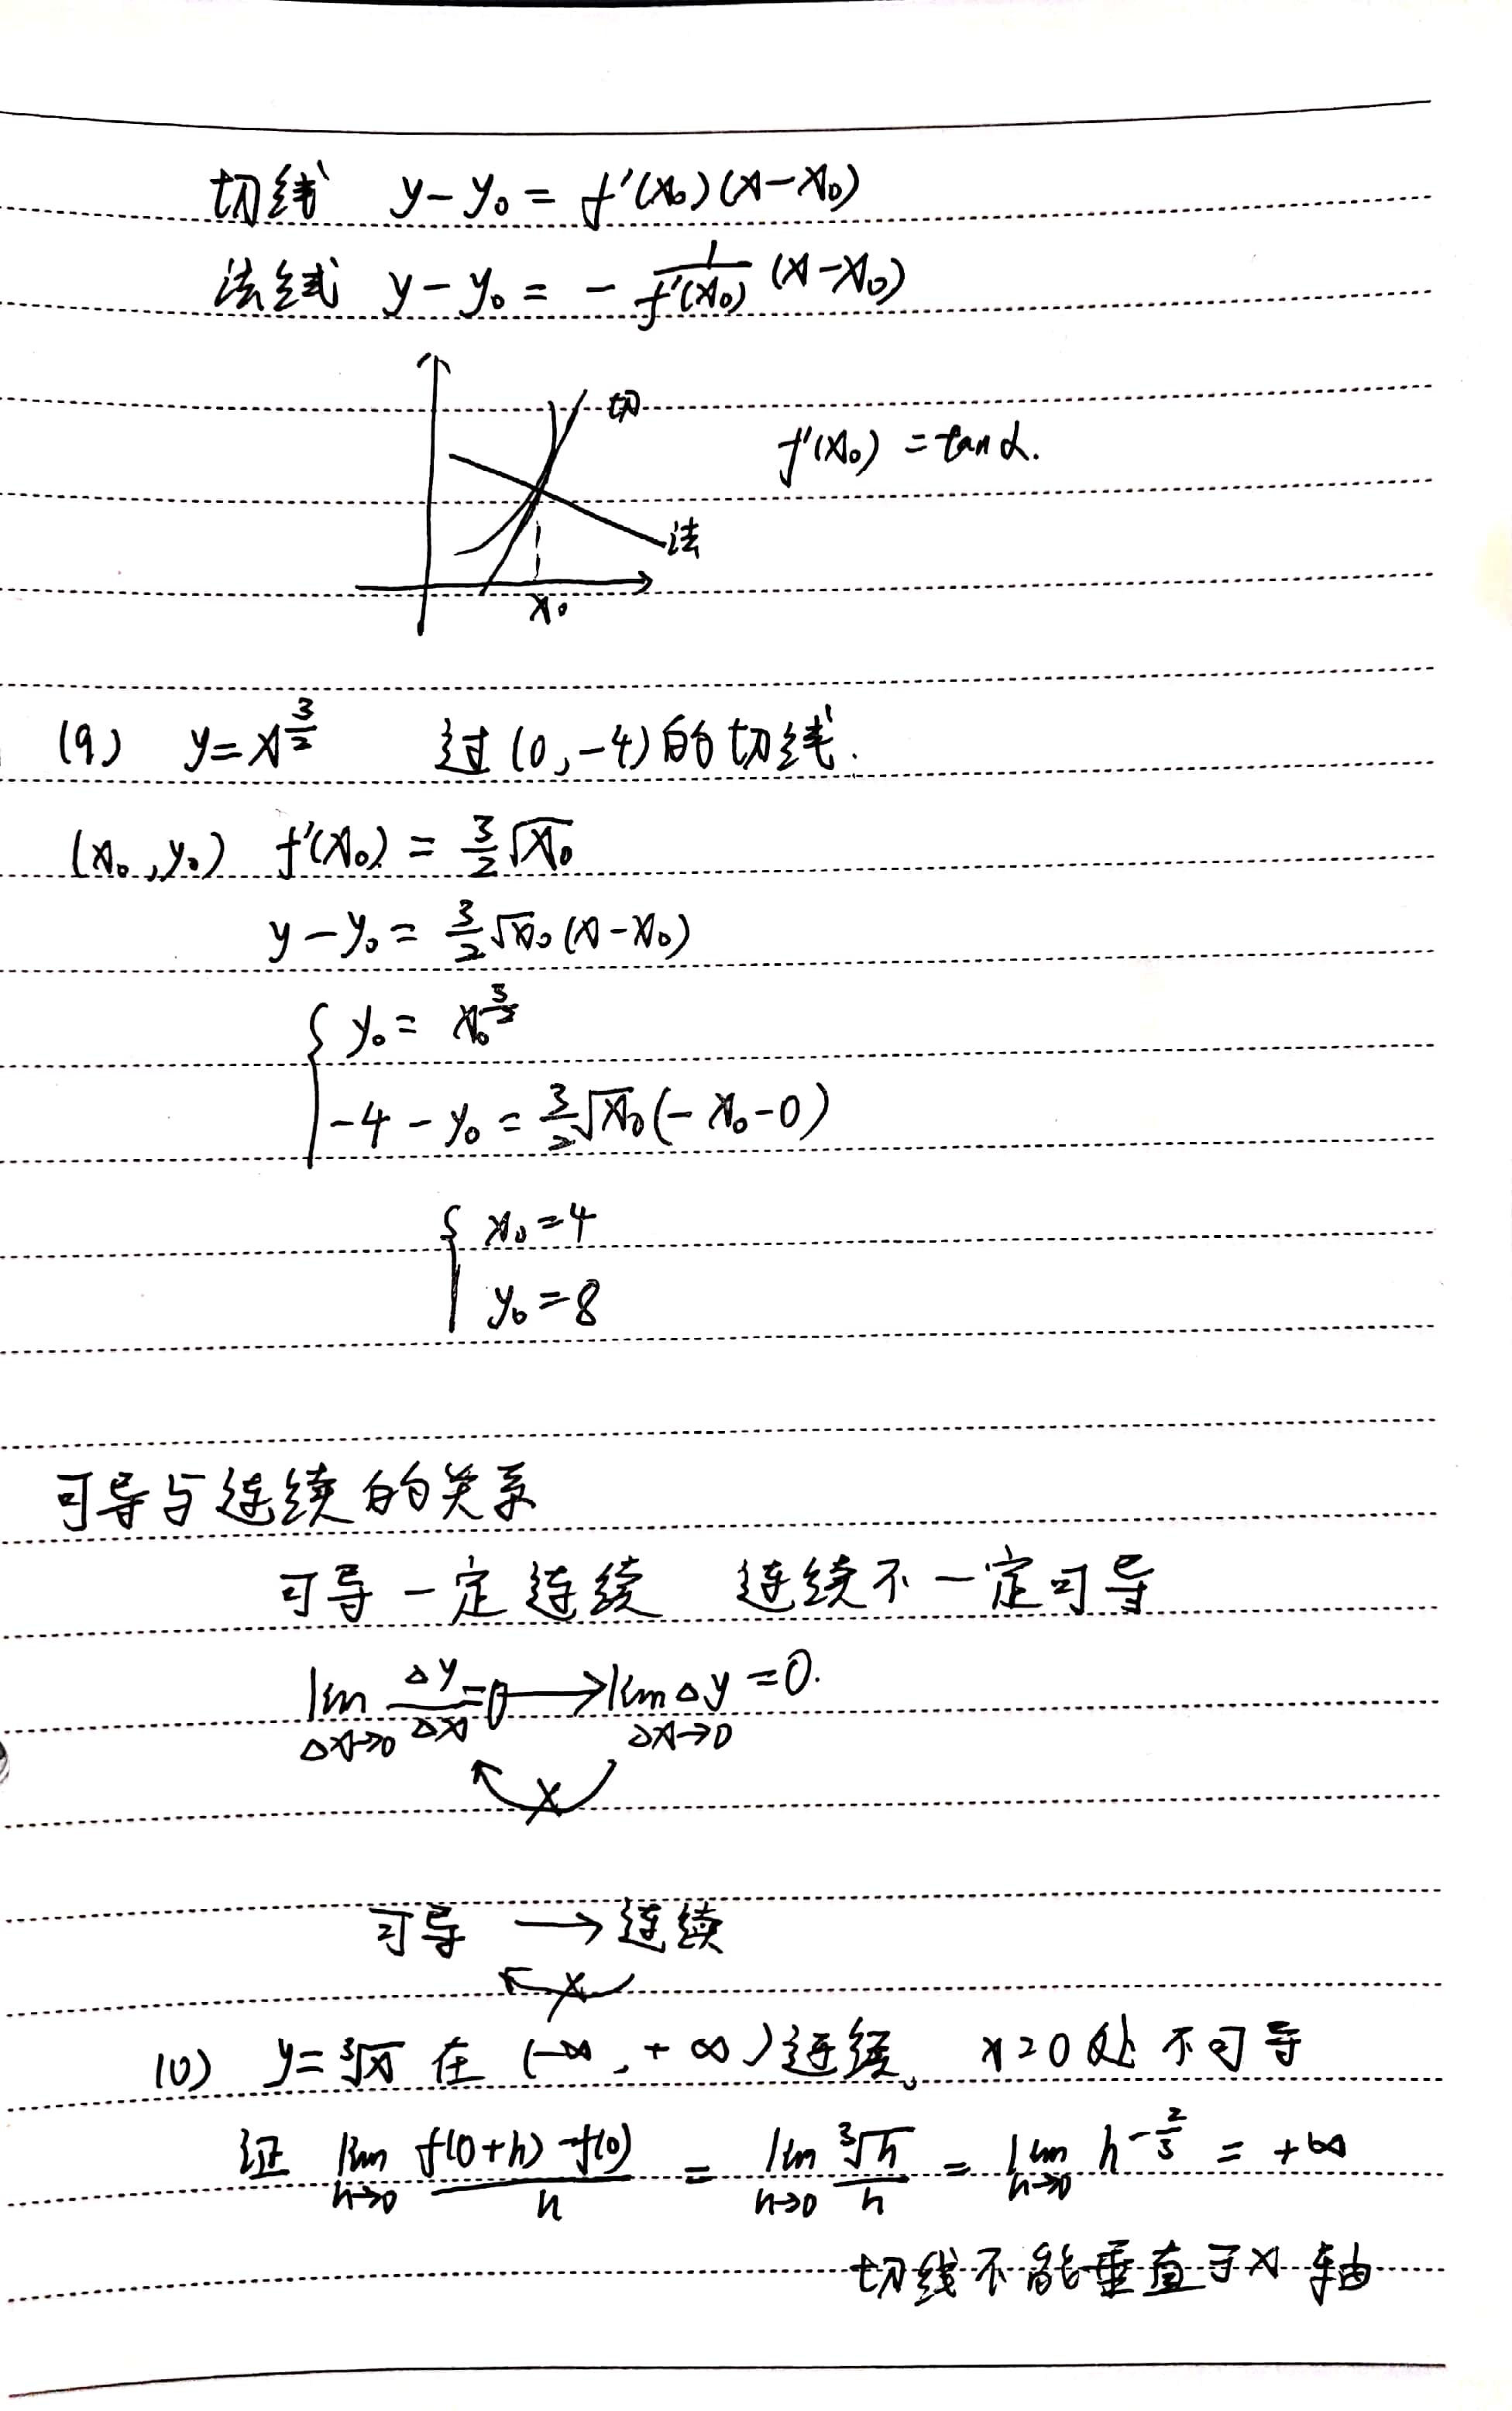 切线 y-y₀ = f'(x₀)(x-x₀)
法线 y-y₀ = - 1/f'(x₀) (x-x₀)
切
f'(x₀) = tanα.
法
x₀
(9) y=x^(3/2) 过(0,-4)的切线.
(x₀,y₀) f'(x₀) = 3/2 √x₀
y-y₀ = 3/2 √x₀ (x-x₀)
{ y₀ = x₀^(3/2)
-4-y₀ = 3/2 √x₀ (-x₀-0)
{ x₀=4
y₀=8
可导与连续的关系
可导一定连续 连续不一定可导
lim Δx→0 Δy/Δx =0 → lim Δx→0 Δy =0.
×
可导 → 连续
×
(10) y=³√x 在 (-∞,+∞)连续, x=0处不可导
证 lim h→0 f(0+h)-f(0)/h = lim h→0 ³√h/h = lim h→0 h^(-2/3) = +∞
切线不能垂直于x轴